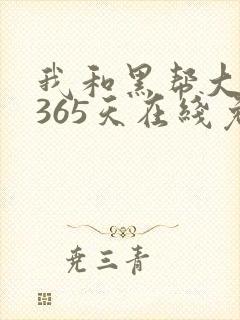 我和黑帮大
365天在线
尭三青